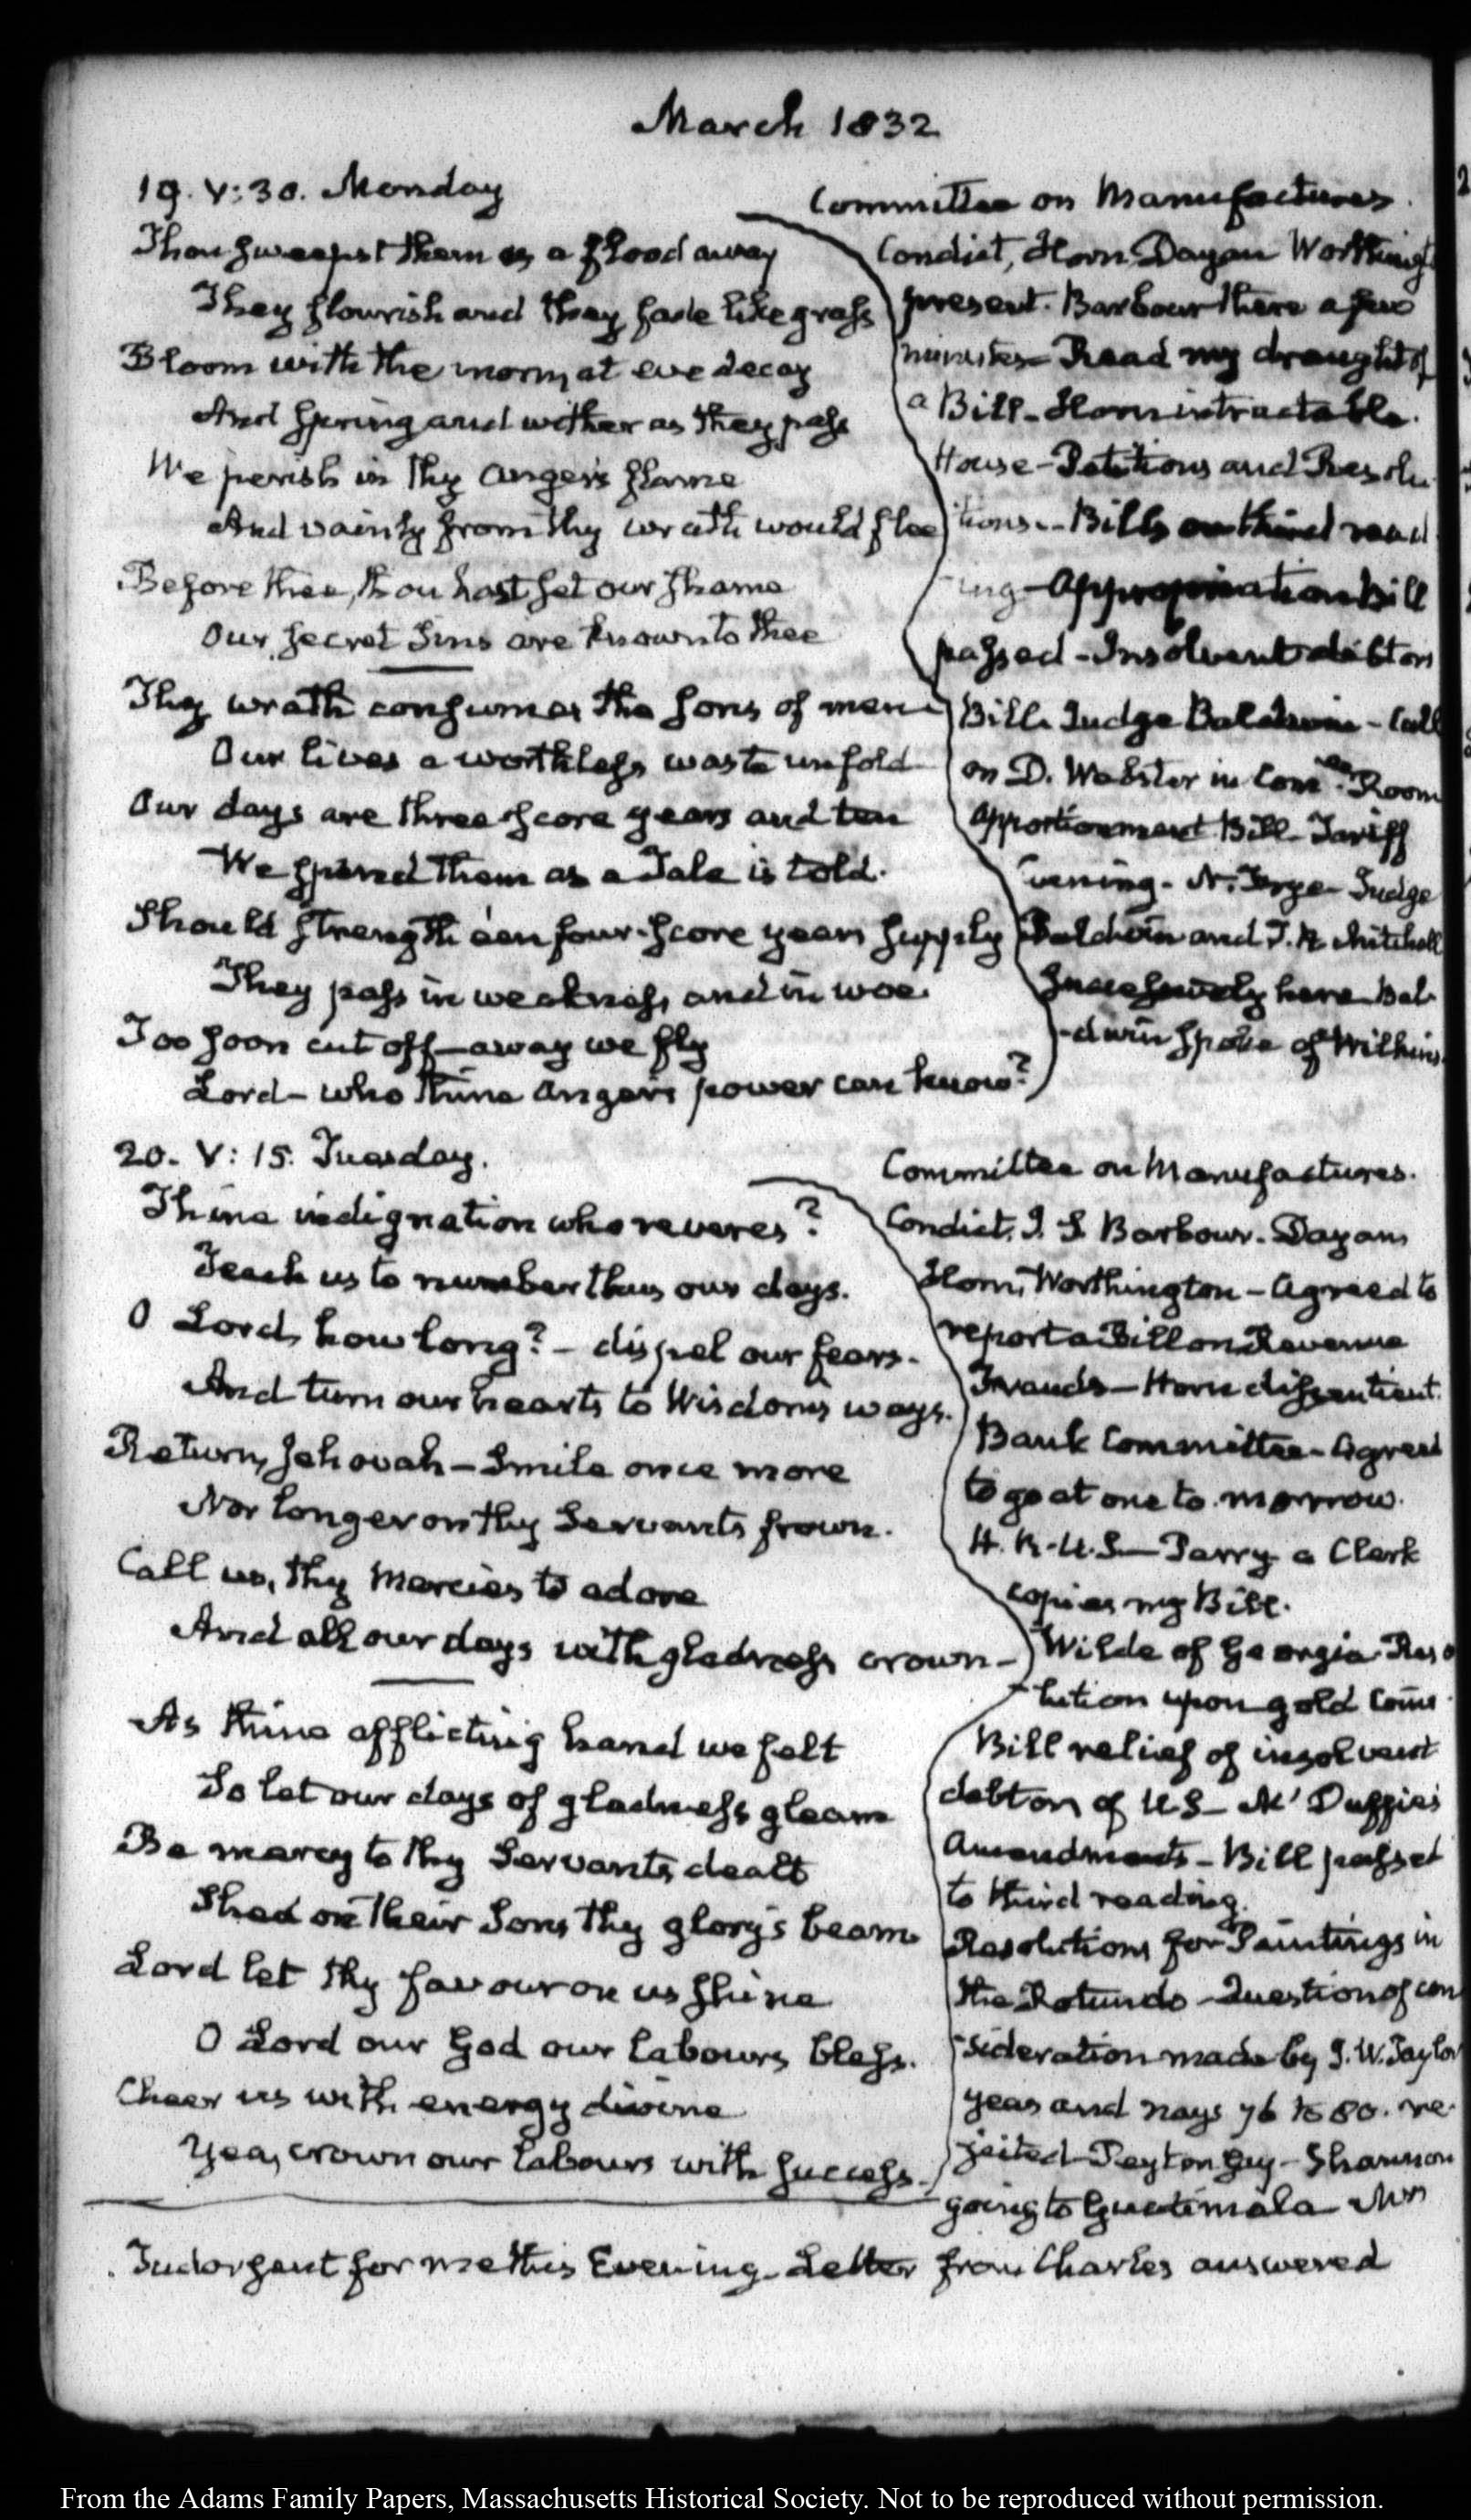 March 1832
19. V:30. Monday
Thou sweepst them as a flood away
They flourish and they fade like grass
Bloom with the morn, at eve decay
And spring and wither as they pass
We perish in thy anger's flame
And vainly from thy wrath would flee
Before thee, thou hast set our shame
Our secret sins are known to thee
Thy wrath consumes the sons of men
Our lives a worthless waste unfold
Our days are three score years and ten
We spend them as a Tale is told.
Should strength even four-score years supply
They pass in weakness, and in woe.
Too soon cut off—away we fly
Lord— who thine anger's power can know?
Committee on Manufactures.
Condict, Horn, Dayan Worthingt
present. Barbour there a few
minutes— Read my draught of
a Bill— Horn intractable.
House— Petitions and Resolu
tions— Bills on third read
ing— Appropriation Bill
passed— Insolvent debtors
Bill. Judge Baldwin— Call
on D. Webster in Comee. Room
Apportionment Bill— Tariff
Evening— Judge
Baldwin and T. R. Mitchell
successively here— Bal
-dwin spoke of Wilkins.
20. V:15. Tuesday.
Thine indignation who reveres?
Teach us to number thus our days.
O Lord, how long?— dispel our fears.
And turn our hearts to Wisdom's ways.
Return, Jehovah— Smile once more
Nor longer on thy Servants frown.
Call us, thy Mercies to adore
And all our days with gladness crown—
As thine afflicting hand we felt
So let our days of gladness gleam
Be mercy to thy Servants dealt
Shed on their Sons thy glory's beam.
Lord let thy favour on us shine
O Lord our God our labours bless.
Cheer us with energy divine
Yea, crown our labours with success.
Committee on Manufactures.
Condict, J. S. Barbour. Dayan,
Horn, Worthington— Agreed to
report a Bill on Revenue
Frauds— Horn dissentient.
Bank Committee— Agreed
to go at one to morrow.
H. R. U.S— Parry a Clerk
copies my Bill.
Wilde of Georgia. Reso
lution upon gold coins.
Bill relief of insolvent
debtors of U.S— McDuffie's
Amendments— Bill passed
to third reading.
Resolutions for Paintings in
the Rotundo— Question of con
sideration made by J. W. Taylor
yeas and nays 76 to 80. re
jected— Peyton Gay— Shannon
going to Guatimala Mrs
Tudor sent for me this Evening. Letter from Charles answered
From the Adams Family Papers, Massachusetts Historical Society. Not to be reproduced without permission.